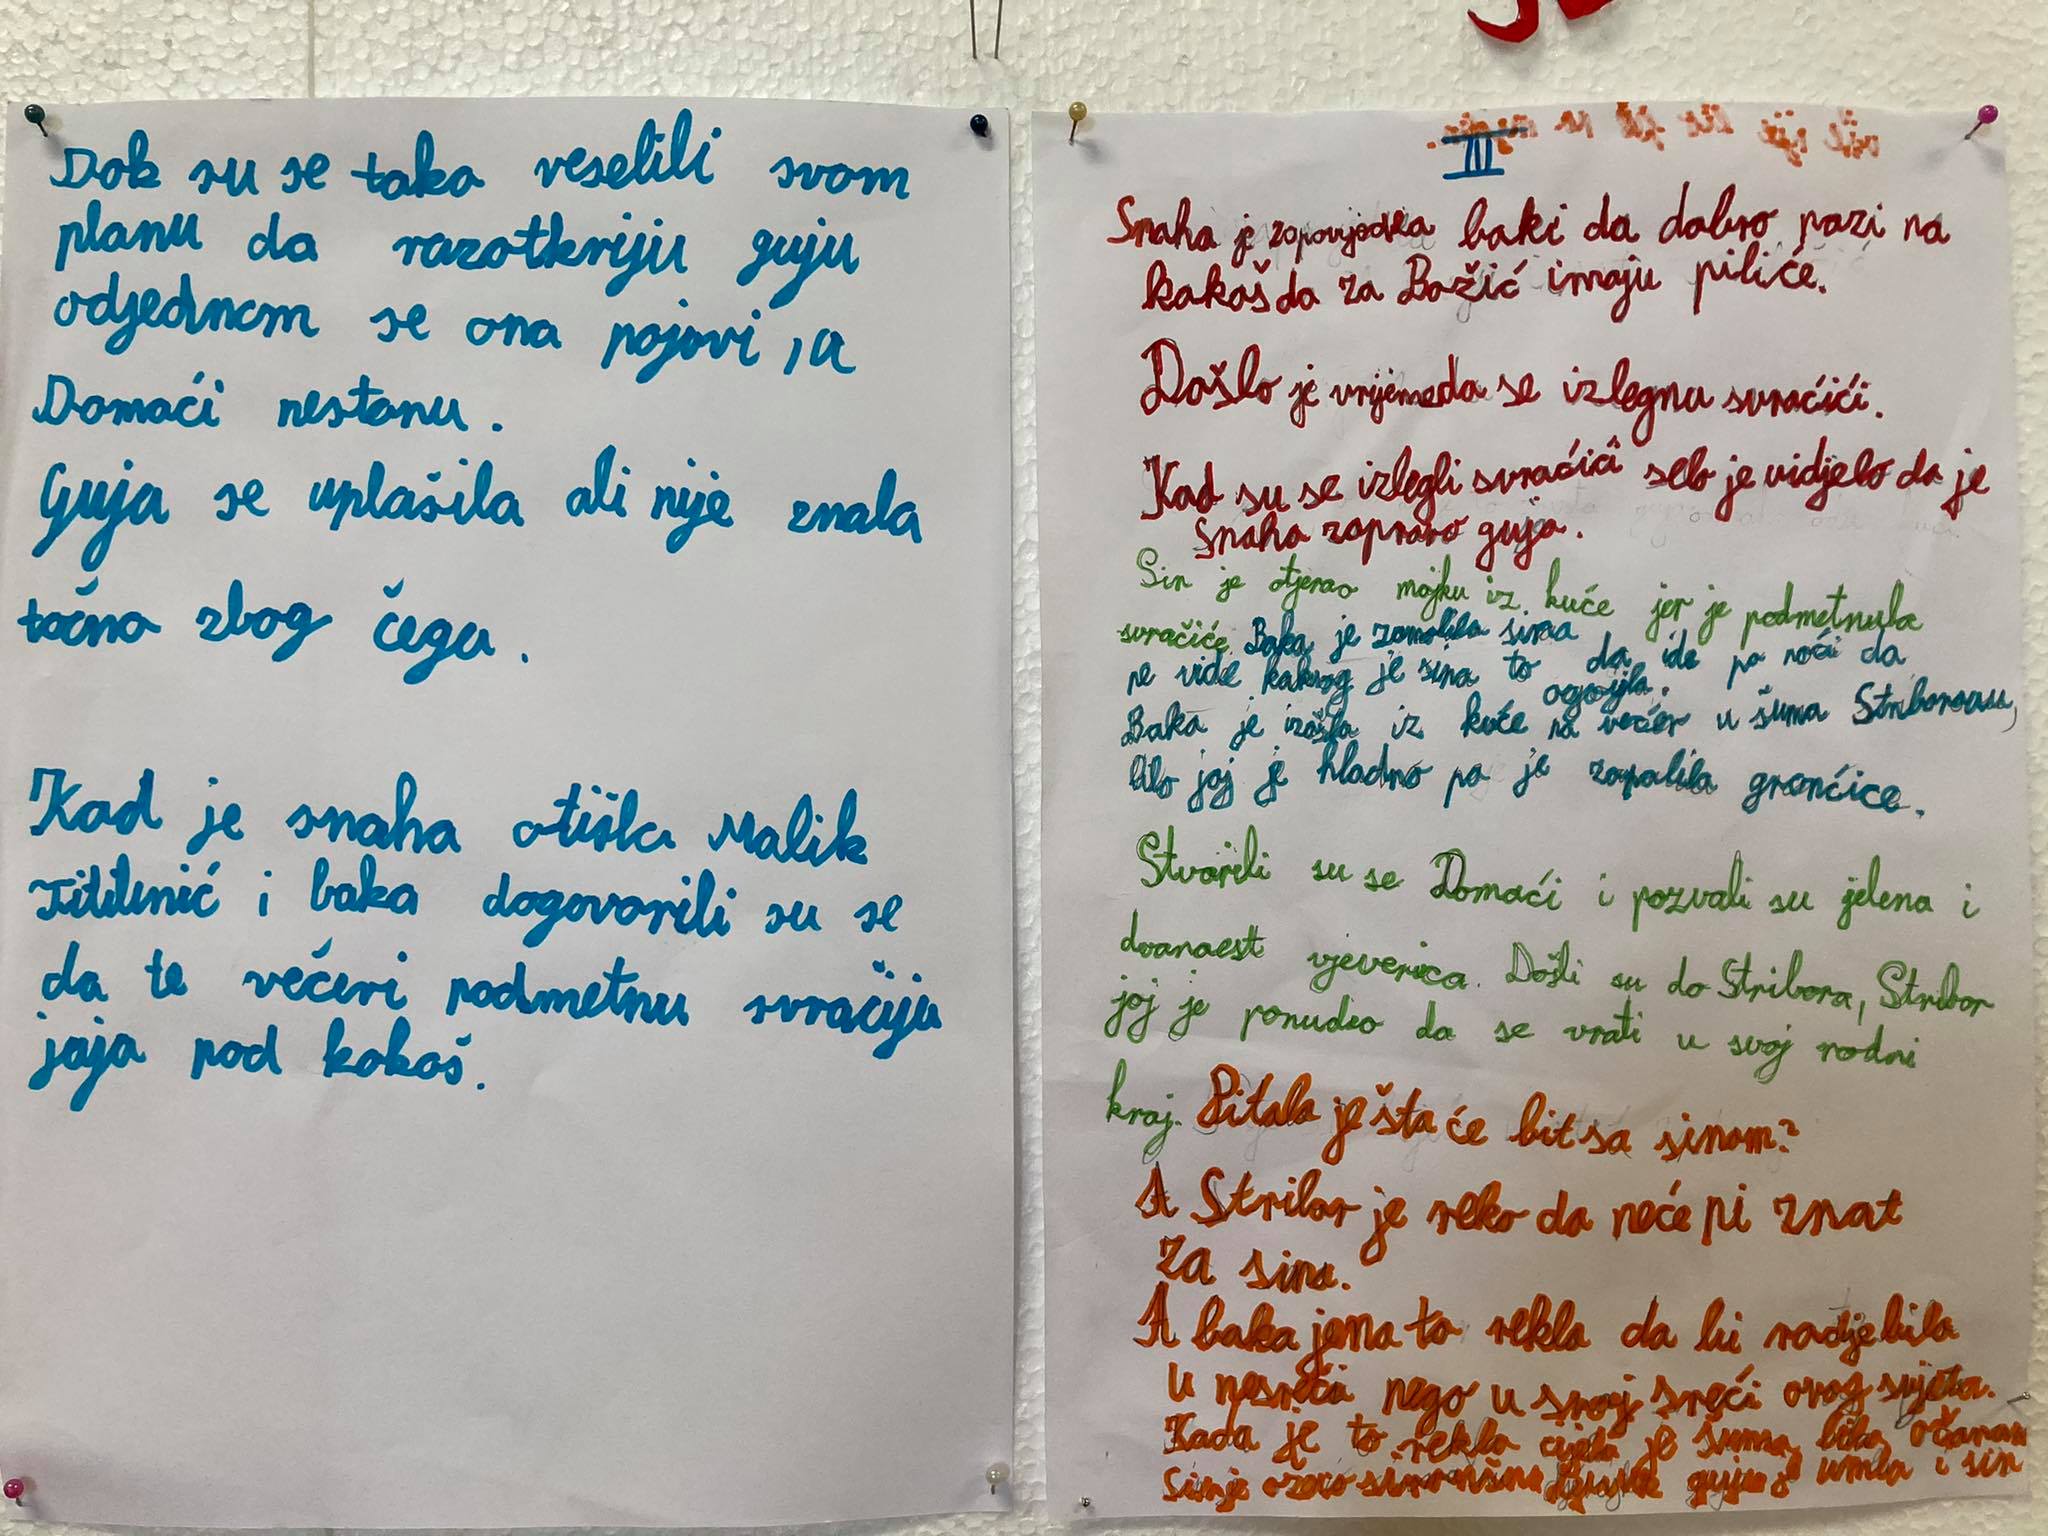 Dok su se tako veselili svom
planu da razotkriju guju
odjednom se ona pojavi, a
Domaći nestanu.
Guja se uplašila ali nije znala
točno zbog čega.
Kad je snaha otišla Malik
Tintilinić i baka dogovorili su se
da te večeri podmetnu svračija
jaja pod kokoš.
III
Snaha je zapovjedila baki da dobro pazi na
kokoš da za Božić imaju piliće.
Došlo je vrijeme da se izlegnu svračići.
Kad su se izlegli svračići selo je vidjelo da je
snaha zapravo guja.
Sin je otjerao majku iz kuće jer je podmetnula
svračiće. Baka je zamolila sina da ide po noći da
ne vide kakvog je sina to odgojila.
Baka je izašla iz kuće na večer u šuma Striborovu,
bilo joj je hladno pa je zapalila grančice.
Stvorili su se Domaći i pozvali su jelena i
dvanaest vjeverica. Došli su do Stribora, Stribor
joj je ponudio da se vrati u svoj rodni
kraj. Pitala je šta će bit sa sinom?
A Stribor je reko da neće ni znat
za sina.
A baka je na to rekla da bi radje bila
u nesreći nego u svoj sreći ovog svijeta.
Kada je to rekla cijela je šuma bila
Sin je guja umla i sin